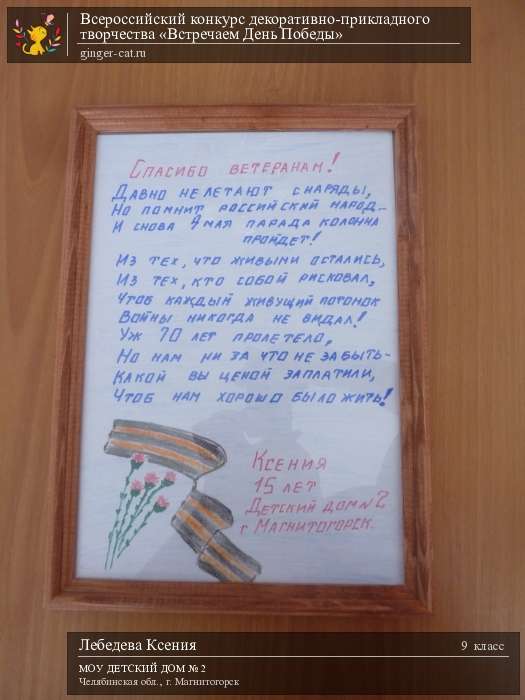 Всероссийский конкурс декоративно-прикладного
творчества «Встречаем День Победы»
ginger-cat.ru
Спасибо ветеранам!
Давно не летают снаряды,
Но помнит российский народ...
И снова 9 мая парада колонна
пройдёт!
Из тех, что живыми остались,
Из тех, кто собой рисковал,
Чтоб каждый живущий потомок
Войны никогда не видал!
Уж 70 лет пролетело,
Но нам ни за что не забыть-
Какой вы ценой заплатили,
Чтоб нам хорошо было жить!
Ксения
15 лет
Детский дом №2
г Магнитогорск.
Лебедева Ксения
9 класс
МОУ ДЕТСКИЙ ДОМ № 2
Челябинская обл., г. Магнитогорск